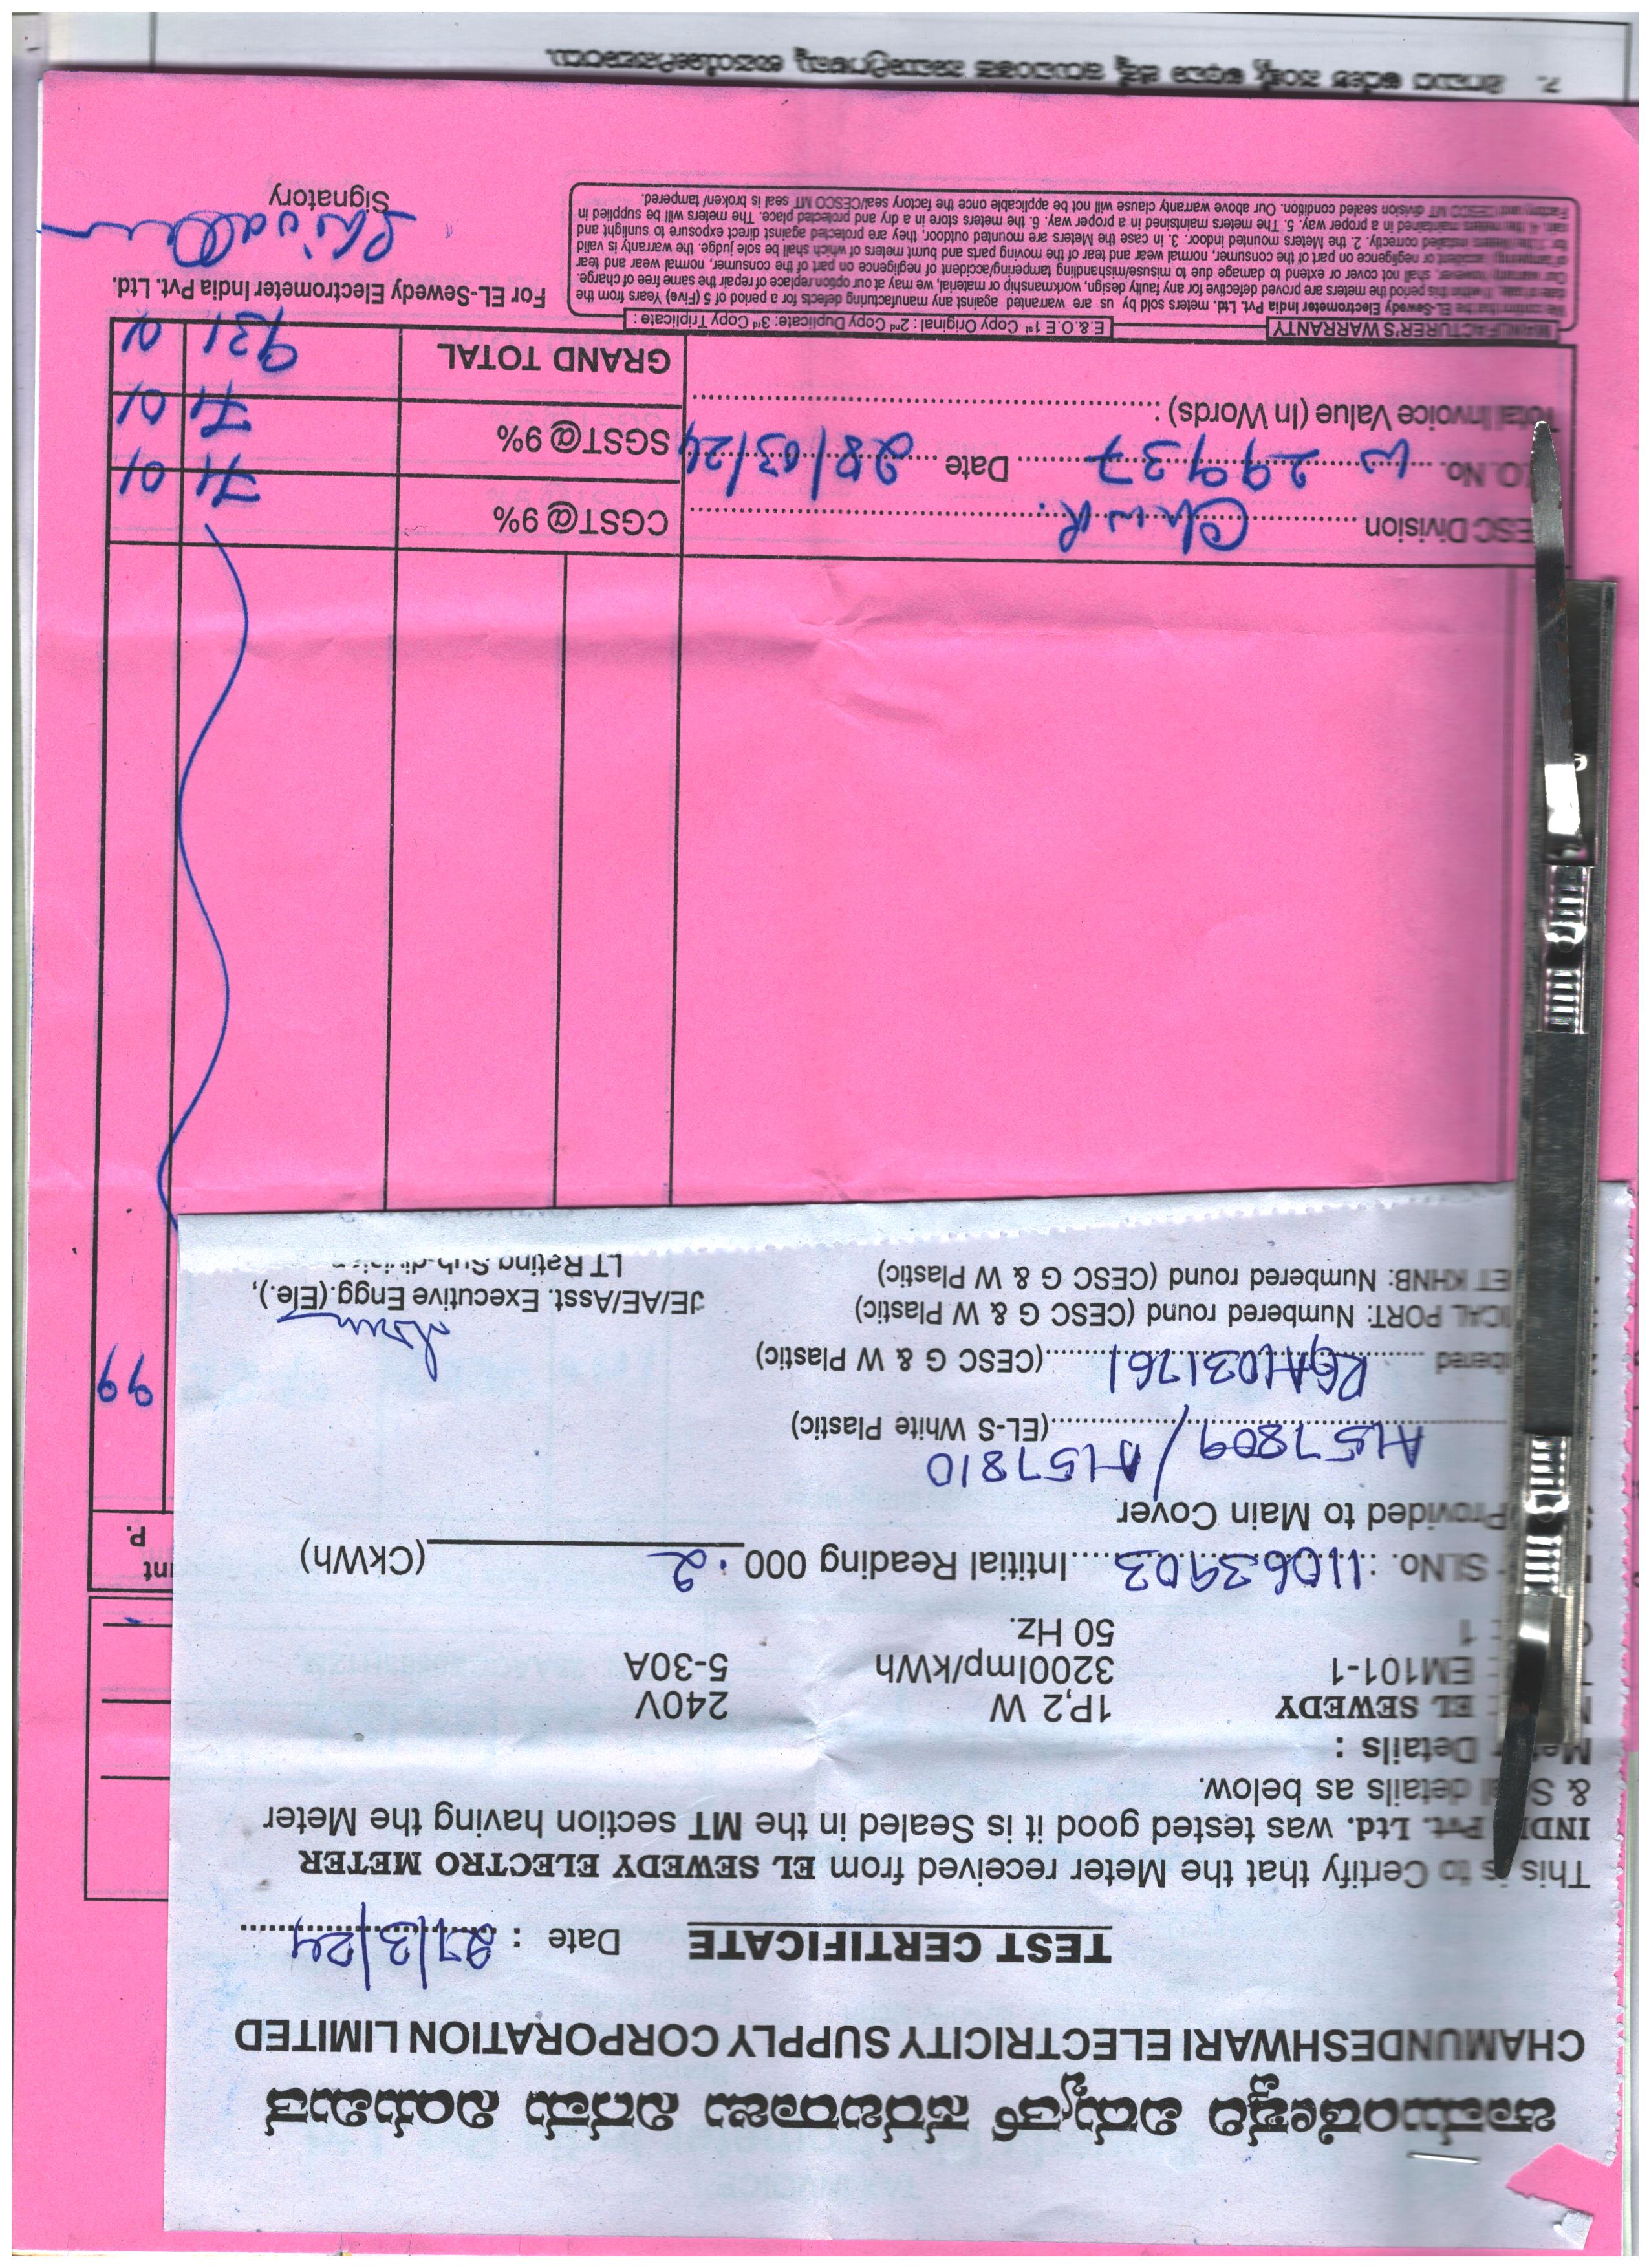 ಚಾಮುಂಡೇಶ್ವರಿ ವಿದ್ಯುತ್ ಸರಬರಾಜು ನಿಗಮ ನಿಯಮಿತ
CHAMUNDESHWARI ELECTRICITY SUPPLY CORPORATION LIMITED
TEST CERTIFICATE Date : 27/3/24
This is to Certify that the Meter received from EL SEWEDY ELECTRO METER
INDI Pvt. Ltd. was tested good it is Sealed in the MT section having the Meter
& details as below.
Details :
: EL SEWEDY 1P,2 W 240V
: EM101-1 3200Imp/kWh 5-30A
: 1 50 Hz.
Sl.No. : 11063903 Intitial Reading 000 .2 (CkWh)
Provided to Main Cover
A1157809 / A1157810 (EL-S White Plastic)
RGA1031761 (CESC G & W Plastic)
PORT: Numbered round (CESC G & W Plastic)
KHNB: Numbered round (CESC G & W Plastic)
JE/AE/Asst. Executive Engg.(Ele.),
LT Rating Sub-division
P.
99
ESC Division CGST@ 9% 71 01
No. 29937 Date 28/03/24 SGST@ 9% 71 01
Total Invoice Value (In Words) : GRAND TOTAL 931
MANUFACTURER'S WARRANTY E.& O.E 1st Copy Original : 2nd Copy Duplicate: 3rd Copy Triplicate :
For EL-Sewedy Electrometer India Pvt. Ltd.
We confirm that the EL-Sewedy Electrometer India Pvt. Ltd. meters sold by us are warranted against any manufacturing defects for a period of 5 (Five) Years from the
date of sale. If within this period the meters are proved defective for any faulty design, workmanship or material, we may at our option replace of repair the same free of charge.
Our warranty however, shall not cover or extend to damage due to misuse/mishandling tampering/accident of negligence on part of the consumer, normal wear and tear
of tampering/ accident or negligence on part of the consumer, normal wear and tear of the moving parts and burnt meters of which shall be sole judge. the warranty is valid
for 1.The Meters installed correctly. 2. the Meters mounted indoor. 3. in case the Meters are mounted outdoor, they are protected against direct exposure to sunlight and
rain. 4. the meters maintained in a proper way. 5. The meters maintsined in a proper way. 6. the meters store in a dry and protected place. The meters will be supplied in
Factory and CESCO MT division sealed condition. Our above warranty clause will not be applicable once the factory seal/CESCO MT seal is broken/ tampered.
Signatory